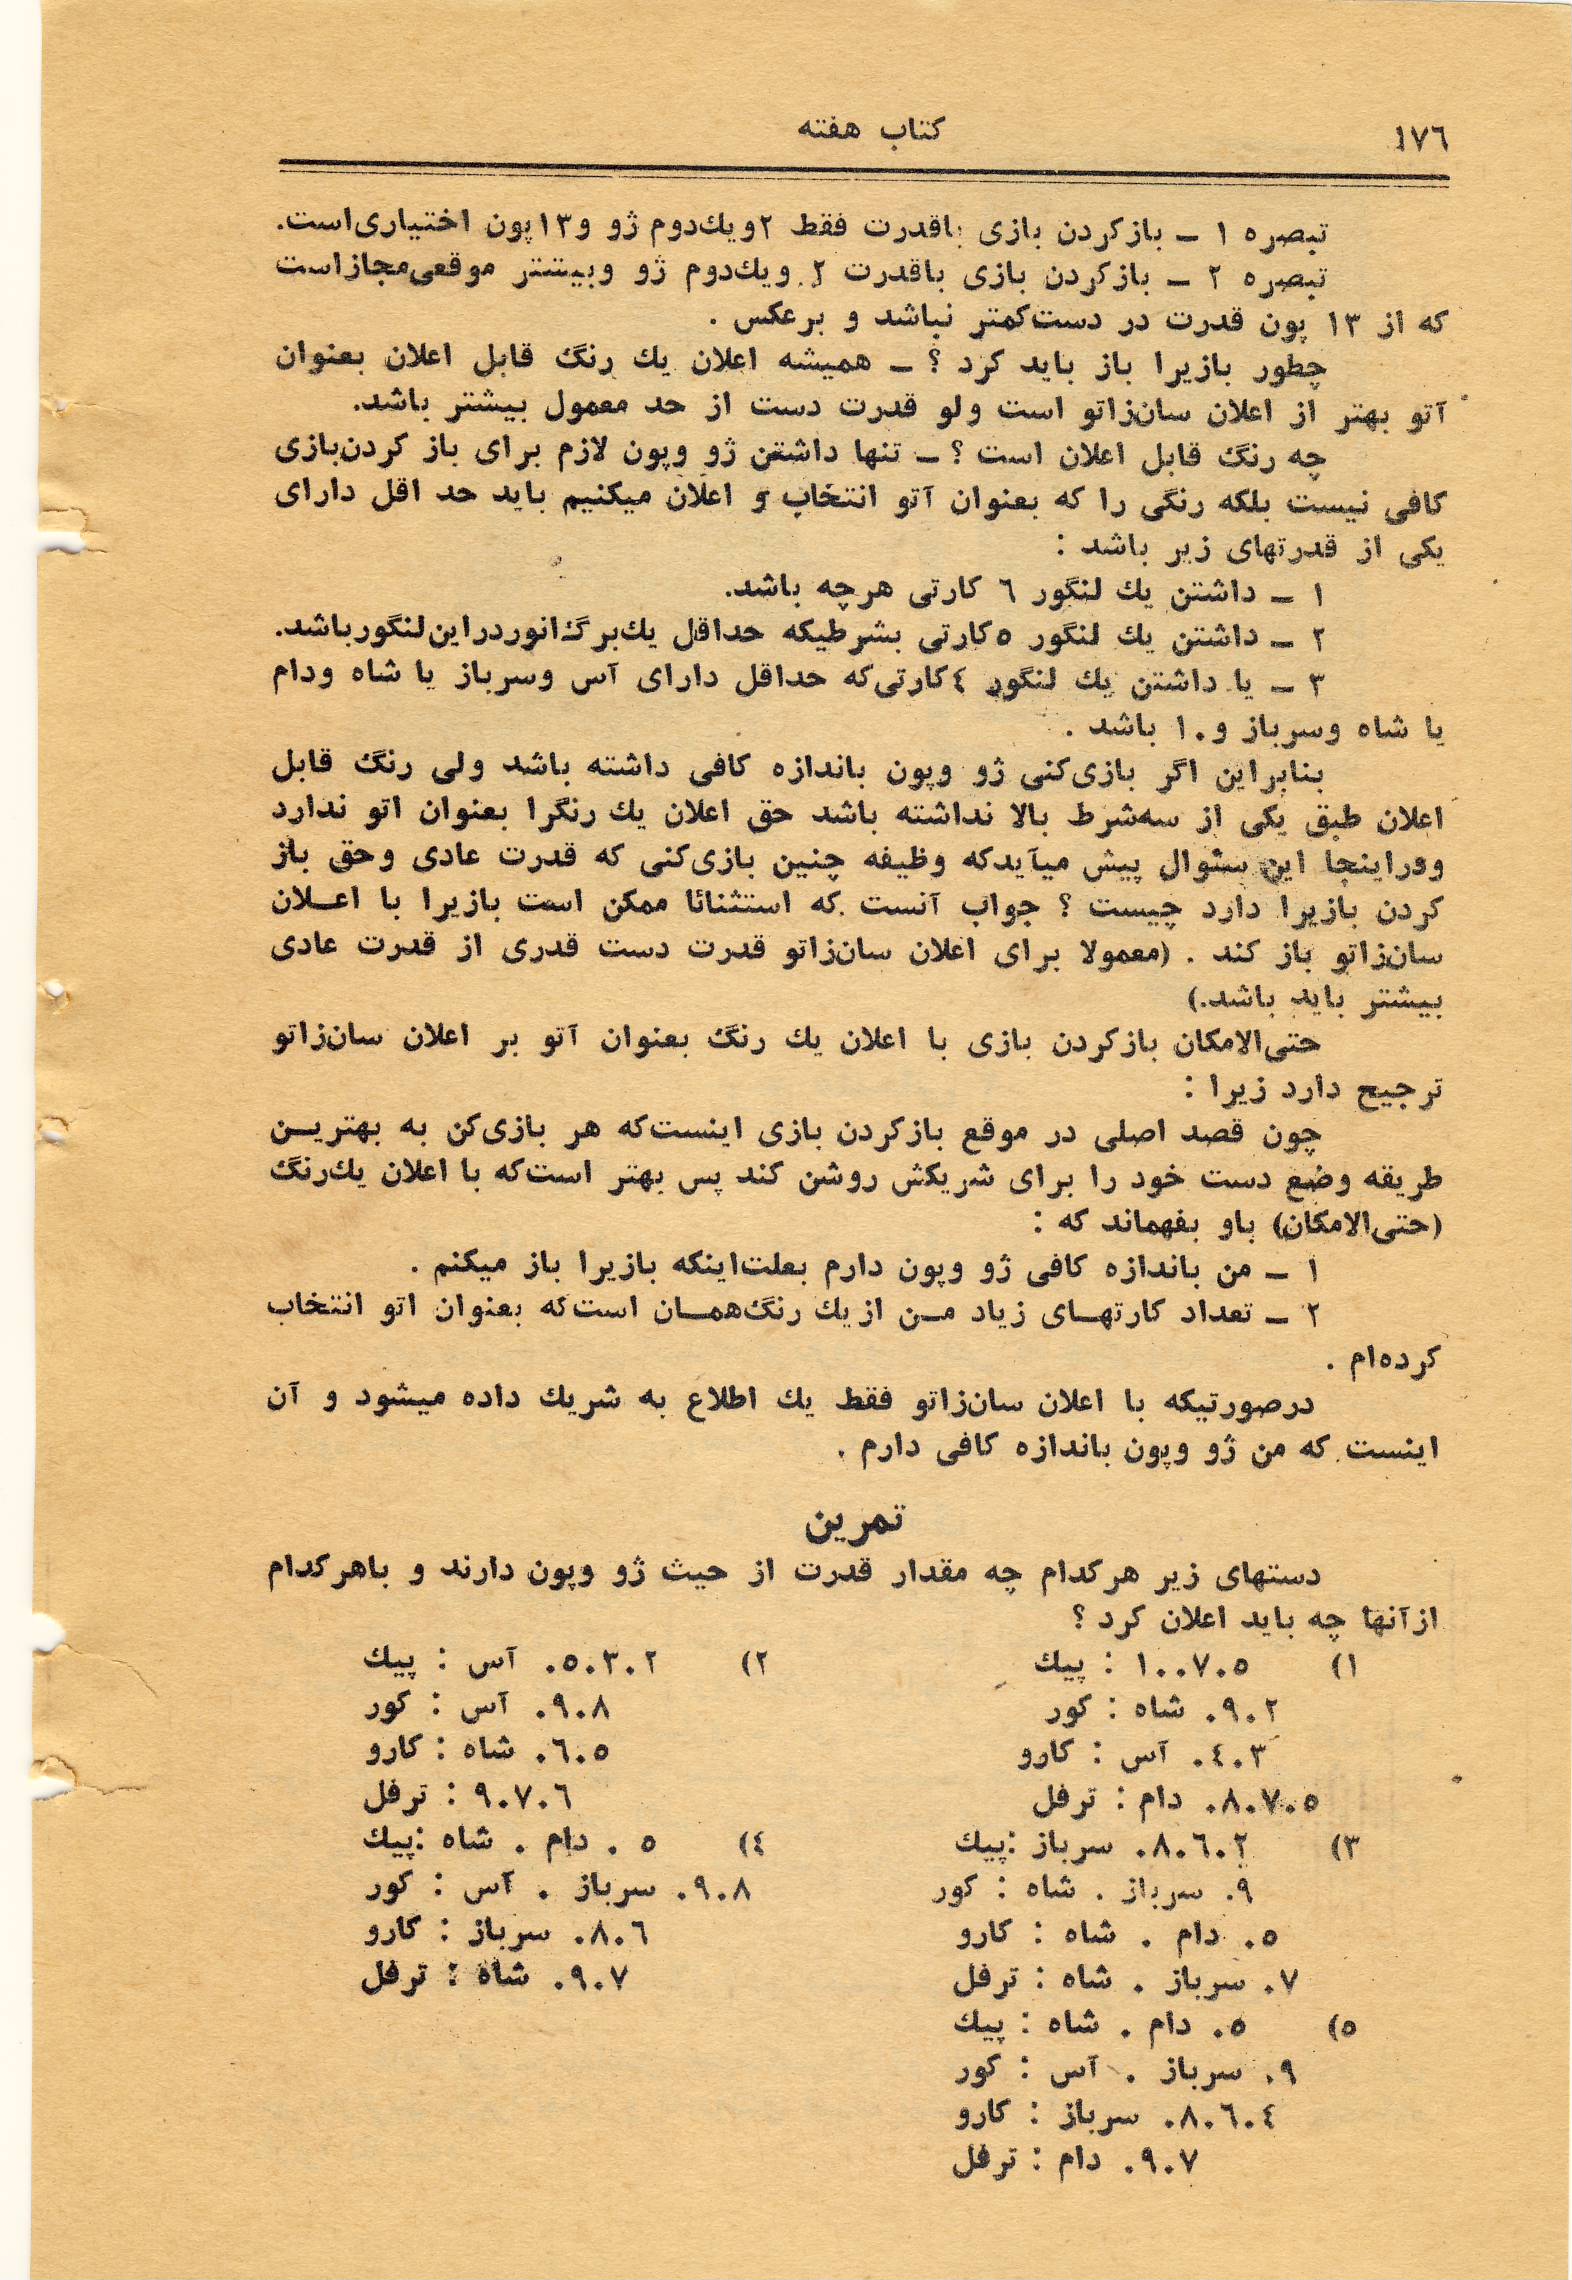 ۱۷٦
کتاب هفته
تبصره ۱ ــ باز کردن بازی باقدرت فقط ۲ویك‌دوم ژو و۱۳پون اختیاری‌است.
تبصره ۲ ــ باز کردن بازی باقدرت ۲ ویك‌دوم ژو وبیشتر موقعی‌مجازاست
که از ۱۳ پون قدرت در دست‌کمتر نباشد و برعکس .
چطور بازیرا باز باید کرد ؟ ــ همیشه اعلان یك رنگ قابل اعلان بعنوان
آتو بهتر از اعلان سان‌زاتو است ولو قدرت دست از حد معمول بیشتر باشد.
چه رنگ قابل اعلان است ؟ ــ تنها داشتن ژو وپون لازم برای باز کردن‌بازی
کافی نیست بلکه رنگی را که بعنوان آتو انتخاب و اعلان میکنیم باید حد اقل دارای
یکی از قدرتهای زیر باشد :
۱ ــ داشتن یك لنگور ٦ کارتی هرچه باشد.
۲ ــ داشتن یك لنگور ٥کارتی بشرطیکه حداقل یك‌برگ‌انوردراین‌لنگورباشد.
۳ ــ یا داشتن یك لنگور ٤کارتی‌که حداقل دارای آس وسرباز یا شاه ودام
یا شاه وسرباز و۱۰ باشد .
بنابراین اگر بازی‌کنی ژو وپون باندازه کافی داشته باشد ولی رنگ قابل
اعلان طبق یکی از سه‌شرط بالا نداشته باشد حق اعلان یك رنگرا بعنوان اتو ندارد
ودراینجا این سئوال پیش میآیدکه وظیفه چنین بازی‌کنی که قدرت عادی وحق باز
کردن بازیرا دارد چیست ؟ جواب آنست که استثنائا ممکن است بازیرا با اعــلان
سان‌زاتو باز کند . (معمولا برای اعلان سان‌زاتو قدرت دست قدری از قدرت عادی
بیشتر باید باشد.)
حتی‌الامکان بازکردن بازی با اعلان یك رنگ بعنوان آتو بر اعلان سان‌زاتو
ترجیح دارد زیرا :
چون قصد اصلی در موقع بازکردن بازی اینست‌که هر بازی‌کن به بهتریــن
طریقه وضع دست خود را برای شریکش روشن کند پس بهتر است‌که با اعلان یك‌رنگ
(حتی‌الامکان) باو بفهماند که :
۱ ــ من باندازه کافی ژو وپون دارم بعلت‌اینکه بازیرا باز میکنم .
۲ ــ تعداد کارتهــای زیاد مــن ازیك رنگ‌همــان است‌که بعنوان اتو انتخاب
کرده‌ام .
درصورتیکه با اعلان سان‌زاتو فقط یك اطلاع به شریك داده میشود و آن
اینست که من ژو وپون باندازه کافی دارم .
تمرین
دستهای زیر هرکدام چه مقدار قدرت از حیث ژو وپون دارند و باهرکدام
ازآنها چه باید اعلان کرد ؟
۱) ۱۰.۷.٥ : پیك
۹.۲. شاه : کور
٤.۳. آس : کارو
۸.۷.٥. دام : ترفل
۲) ٥.۳.۲. آس : پیك
۹.۸. آس : کور
٦.٥. شاه : کارو
۹.۷.٦ : ترفل
۳) ۸.٦.۲. سرباز :پیك
۹. سرباز . شاه : کور
٥. دام . شاه : کارو
۷. سرباز . شاه : ترفل
٤) ٥ . دام . شاه :پیك
۹.۸. سرباز . آس : کور
۸.٦. سرباز : کارو
۹.۷. شاه : ترفل
٥) ٥. دام . شاه : پیك
۹. سرباز . آس : کور
۸.٦.٤. سرباز : کارو
۹.۷. دام : ترفل